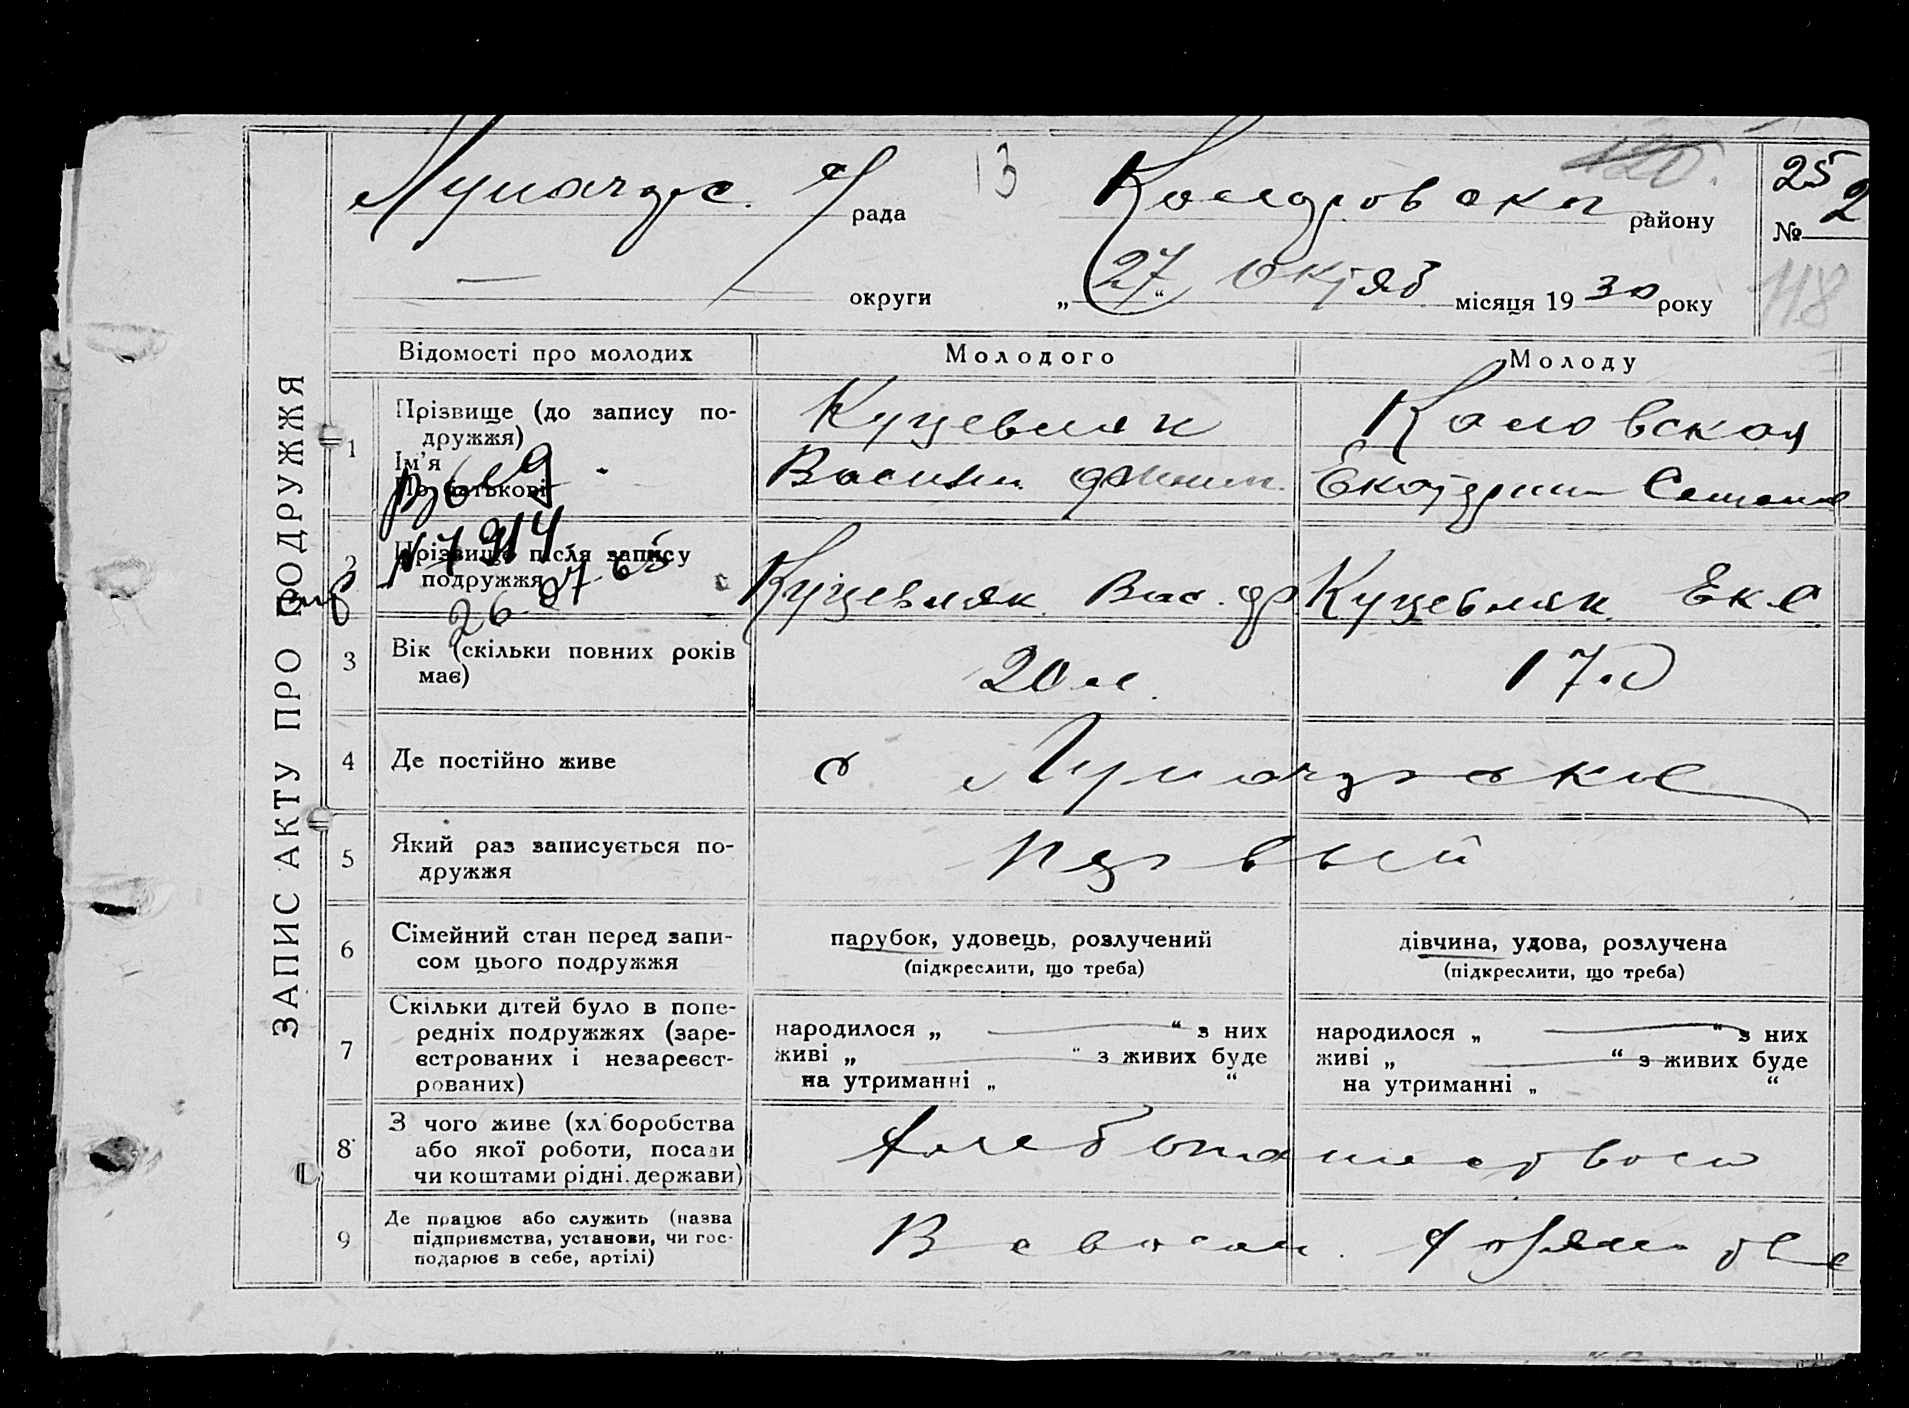 Луначарс. с/рада 13 Комаровска району 25 № 2
— округи „27“ Октяб місяця 1930 року 118
ЗАПИС АКТУ ПРО ПОДРУЖЖЯ
Відомості про молодих Молодого Молоду
1 Прізвище (до запису по-
дружжя) Куцевляк
Ім’я
По батькові Васили Екатерин
2 Прізвище після запису
подружжя Куцевляк Вас. Ф Куцевляк Ек С
26 07 65
3 Вік (скільки повних років
має) 20 л. 17 л
4 Де постійно живе с Луначарское
5 Який раз записується по-
дружжя первый
6 Сімейний стан перед запи-
сом цього подружжя
парубок, удовець, розлучений
(підкреслити, що треба)
дівчина, удова, розлучена
(підкреслити, що треба)
7 Скільки дітей було в попе-
редніх подружжях (заре-
єстрованих і незареєст-
рованих)
народилося „ — “ з них
живі „ — “ з живих буде
на утриманні „ “
народилося „ — “ з них
живі „ — “ з живих буде
на утриманні „ “
8 З чого живе (хліборобства
або якої роботи, посади
чи коштами рідні, держави) хлебопашеством
9 Де працює або служить (назва
підприємства, установи, чи гос-
подарює в себе, артілі) В своем хозяйстве